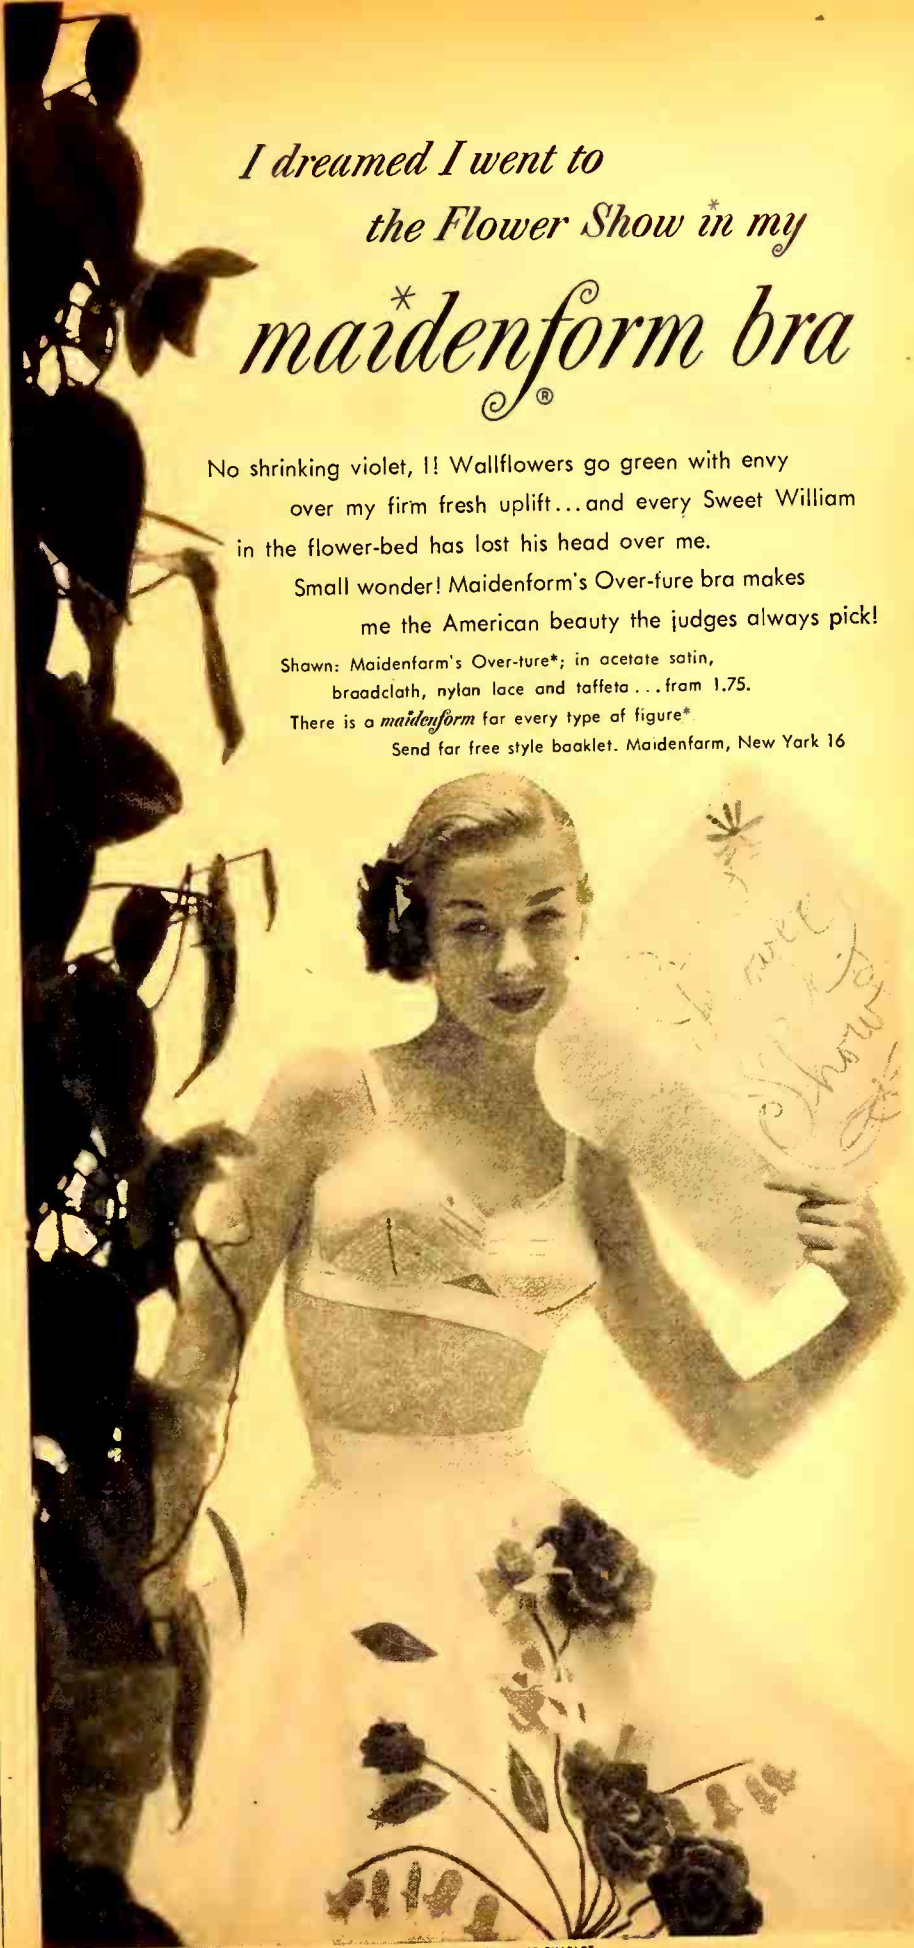 I dreamed I went to
the Flower Show in my
maidenform bra
®
No shrinking violet, I! Wallflowers go green with envy
over my firm fresh uplift...and every Sweet William
in the flower-bed has lost his head over me.
Small wonder! Maidenform's Over-ture bra makes
me the American beauty the judges always pick!
Shawn: Maidenfarm's Over-ture*; in acetate satin,
braadclath, nylan lace and taffeta ... fram 1.75.
There is a maidenform far every type af figure*
Send far free style baaklet. Maidenfarm, New Yark 16
Show